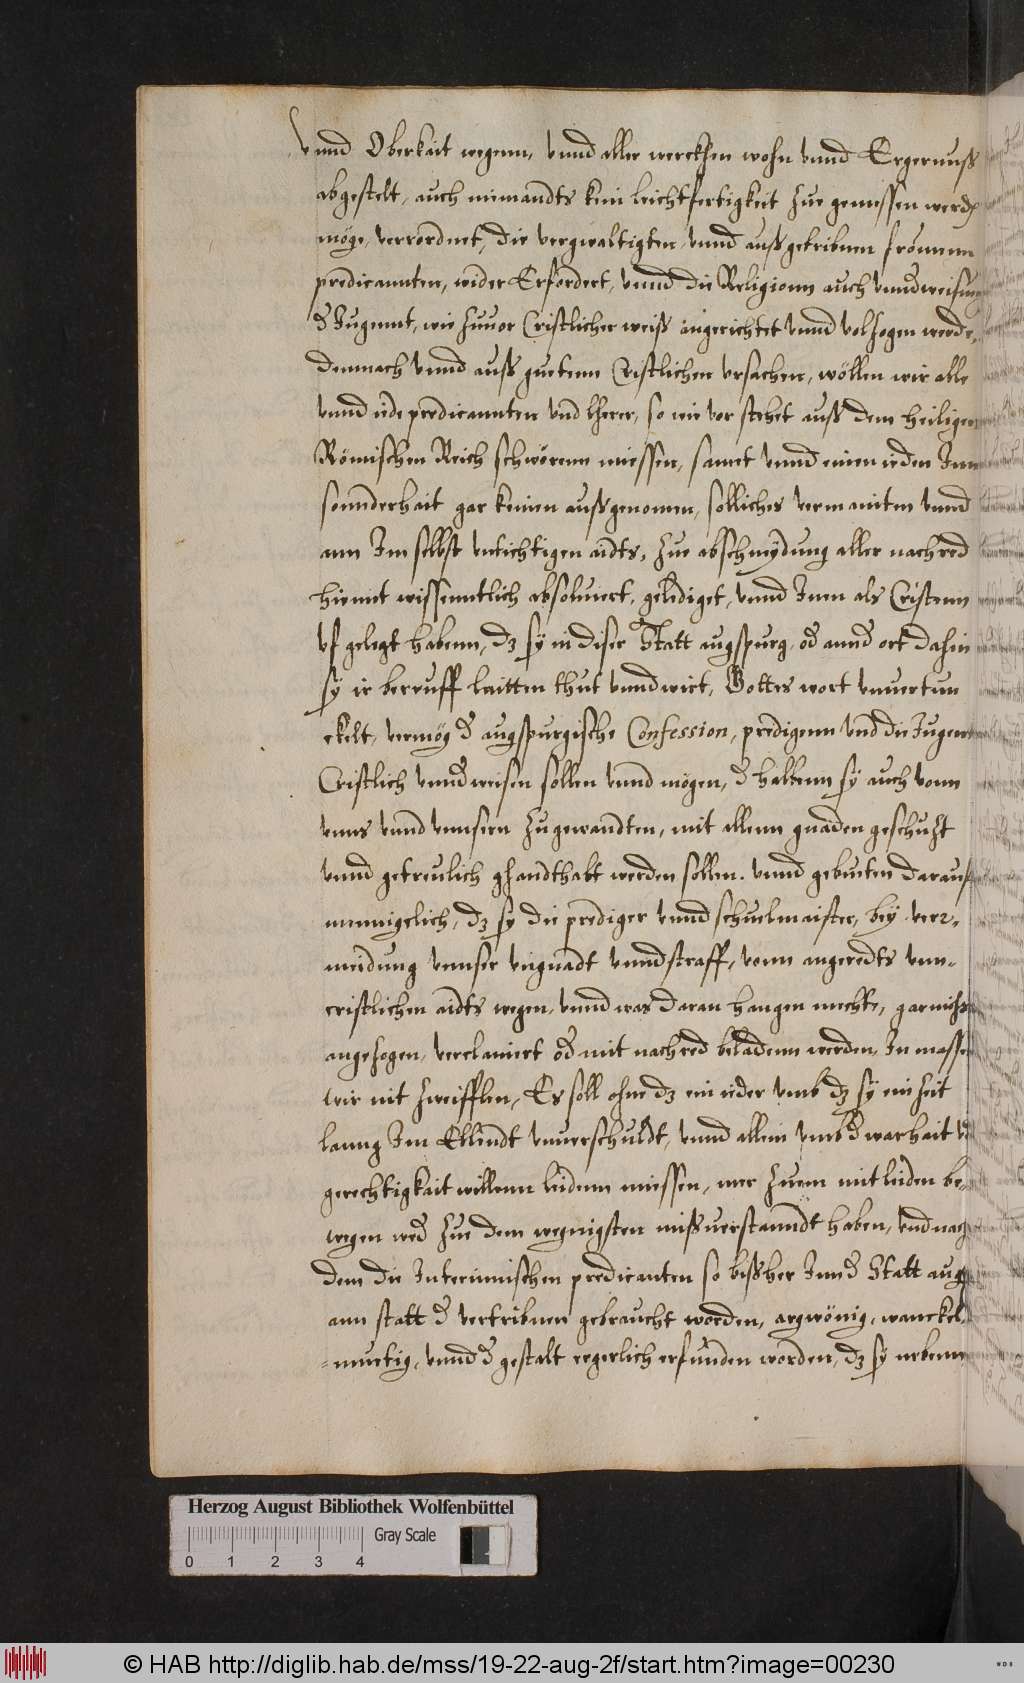 vnnd Oberkait wegenn, vnnd aller werckhen wohn vnnd Ergernuß
abgestelt, auch niemandts kein leichtfertigkeit zue gemessen werdē
möge, verordnet, die vergwaltigten vnnd außgetribnen fromen
predicannten, wider Erfordert, vnnd die Religionn auch vnnd
Jugennt, wie zuuor Cristlicher weiß angerichtet vnnd volzogen werde,
demnach vnnd auß guetenn Cristlichen vrsachen, wöllen wir alle
vnnd iede predicannten vnd lherer, so wie vor stehet auß dem heiligen
Römischen Reich schwörenn miessen, samet vnnd einen ieden Inn
sonnderhait gar keinen außgenomen, solliches vermainten vnnd
ann Im selbst vntichtigen aidts, zue abschneydung aller nachred
hiemit wissenntlich absoluiert, gelediget, vnnd Inen als Cristenn
vf gelegt habenn, dz sy in diser Statt augspurg, od annd ort dahin
sy ir berruff laitten thut vnnd wirt, Gottes wort vnuertun
ckelt, vermög d augspurgische Confession, predigenn vnd die Jugent
Cristlich vnnd weisen sollen vnnd mögen, d halbenn sy auch vonn
vnns vnnd vnnsern zugewandten, mit allenn gnaden geschuzt
vnnd getreulich ghandthabt werden sollen. vnnd gebieten darauf
mennigelich, dz sy die prediger vnnd schuelmaister, bey ver-
meidung vnnser vngnadt vnnd straff, vonn angeredts vnn-
cristlichen aidts wegen, vnnd was daran hangen mechte, gar nichts
angezogen, verclainert od mit nachred beladenn werden, In massen
wir nit zweifflen, Es soll ohne dz ein ieder vmb dz sy ein zeit
lanng Im Ellendt vnuerschuldt, vnnd allein vmb d warhait vnd
gerechtigkait willenn leidenn miessen, mer zuem mitleiden be-
wegen wed zue dem wegnigsten mißuerstanndt haben, vnd nach
dem die Interimischen predicanten so bißher Inn d Statt aug
ann statt d vertribnen gebraucht worden, argwönig, wanckel
-muetig, vnnd d gestalt ergerlich erfunden worden, dz sy nebenn
Herzog August Bibliothek Wolfenbüttel
Gray Scale
0 1 2 3 4
© HAB http://diglib.hab.de/mss/19-22-aug-2f/start.htm?image=00230